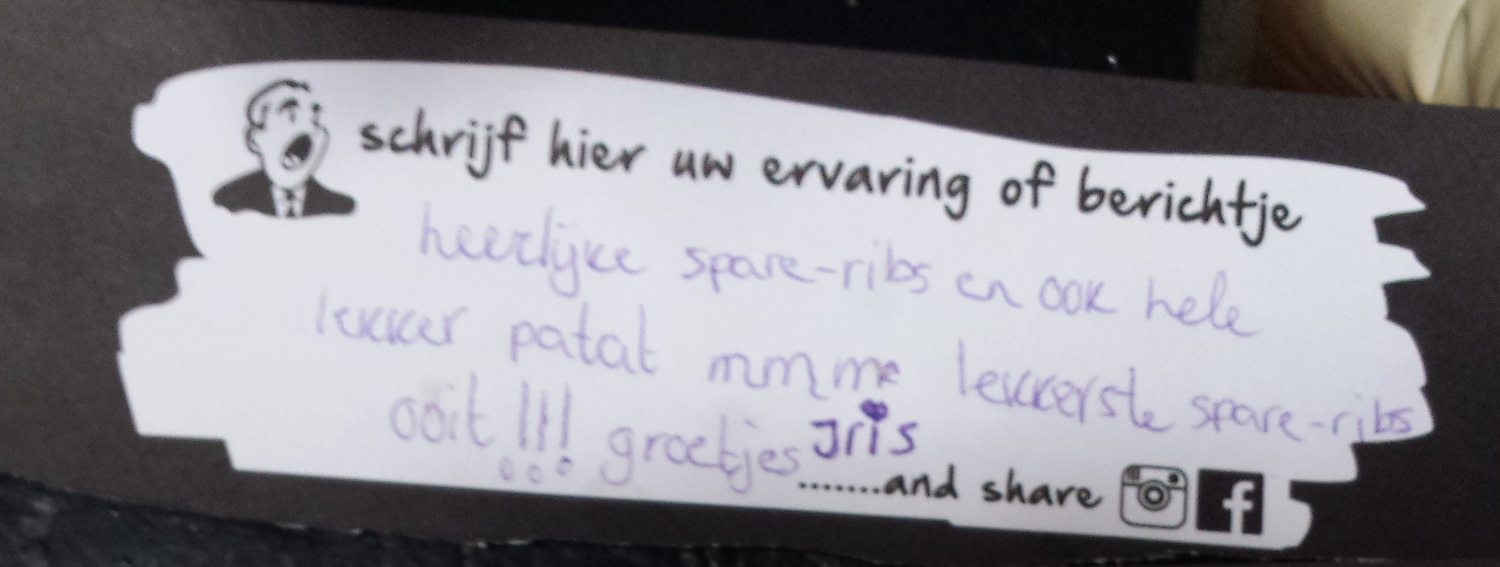 schrijf hier uw ervaring of berichtje
heerlijke spare-ribs en ook hele
lekker patat mmmme lekkerste spare-ribs
ooit!!! groetjes Jris
.......and share